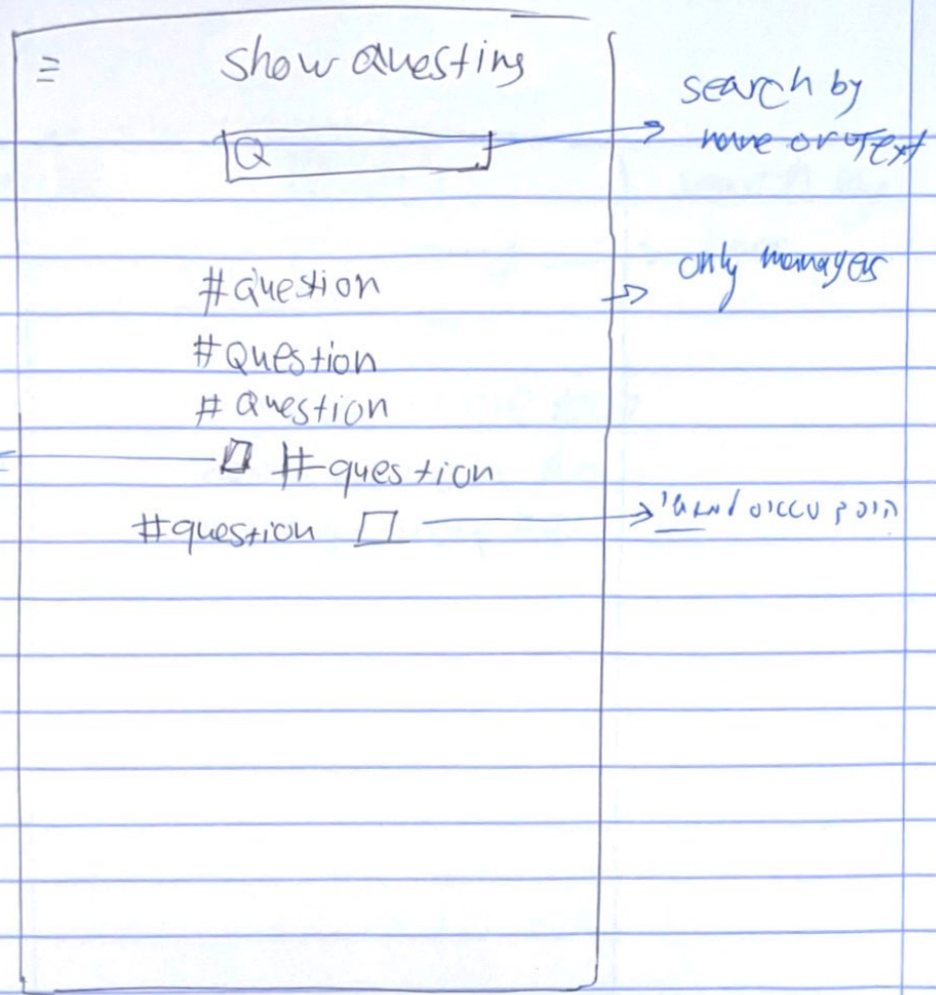 show Questing
Q
search by
name or Text
#Question
only manages
#Question
#Question
#question
#question